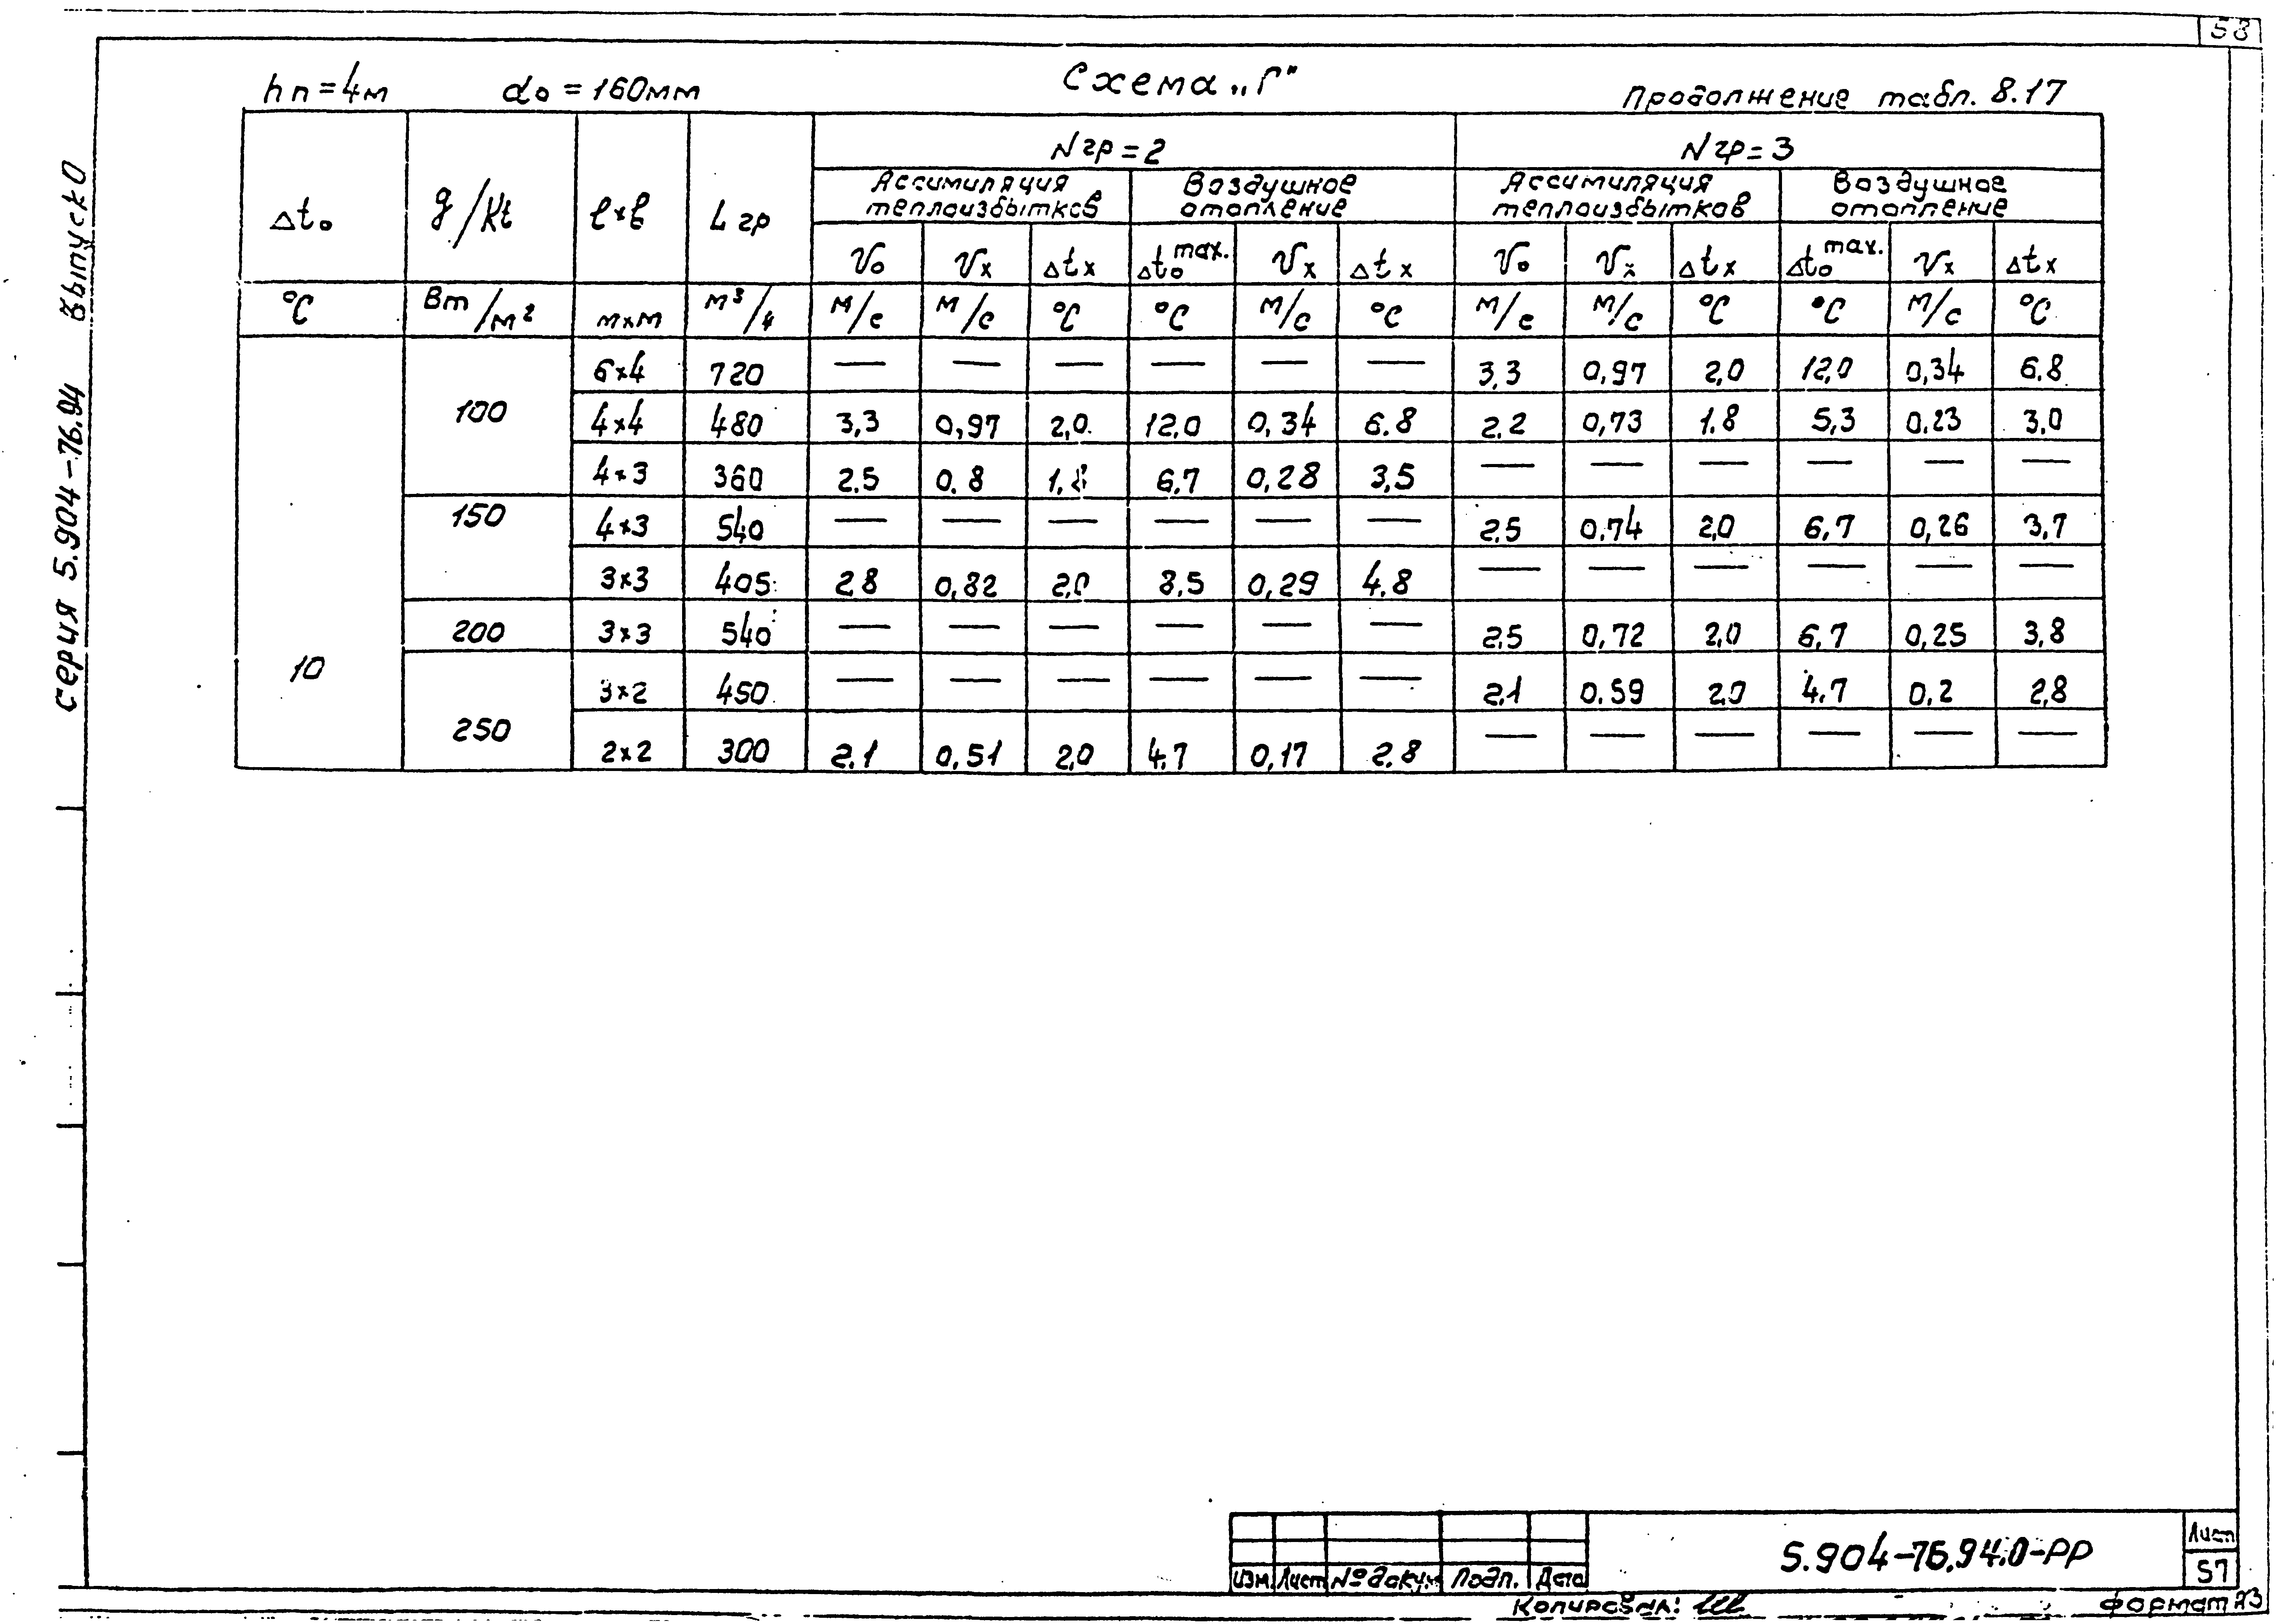 58
hп = 4м d₀ = 160мм Схема „Г" Продолжение табл. 8.17
Δt₀ g/Kt l×b Lгр Nгр = 2 Nгр = 3
Ассимиляция теплоизбытков Воздушное отопление Ассимиляция теплоизбытков Воздушное отопление
V₀ Vx Δtx Δt₀ max. Vx Δtx V₀ Vx Δtx Δt₀ max. Vx Δtx
°C Вт/м² м×м м³/ч м/с м/с °C °C м/с °C м/с м/с °C °C м/с °C
10
100 6×4 720 — — — — — — 3,3 0,97 2,0 12,0 0,34 6.8
4×4 480 3,3 0,97 2,0 12,0 0,34 6.8 2.2 0,73 1.8 5,3 0.23 3,0
4×3 360 2.5 0.8 1,8 6.7 0,28 3,5 — — — — — —
150 4×3 540 — — — — — — 2.5 0.74 2,0 6,7 0,26 3,7
3×3 405 2.8 0,82 2,0 8,5 0,29 4.8 — — — — — —
200 3×3 540 — — — — — — 2,5 0,72 2,0 6,7 0,25 3,8
250 3×2 450 — — — — — — 2,1 0.59 2,0 4.7 0,2 2,8
2×2 300 2.1 0,51 2,0 4.7 0,17 2.8 — — — — — —
серия 5.904-76.94 Выпуск 0
Изм. Лист № докум. Подп. Дата
5.904-76.94.0-РР
Лист
57
Копировал:
формат А3